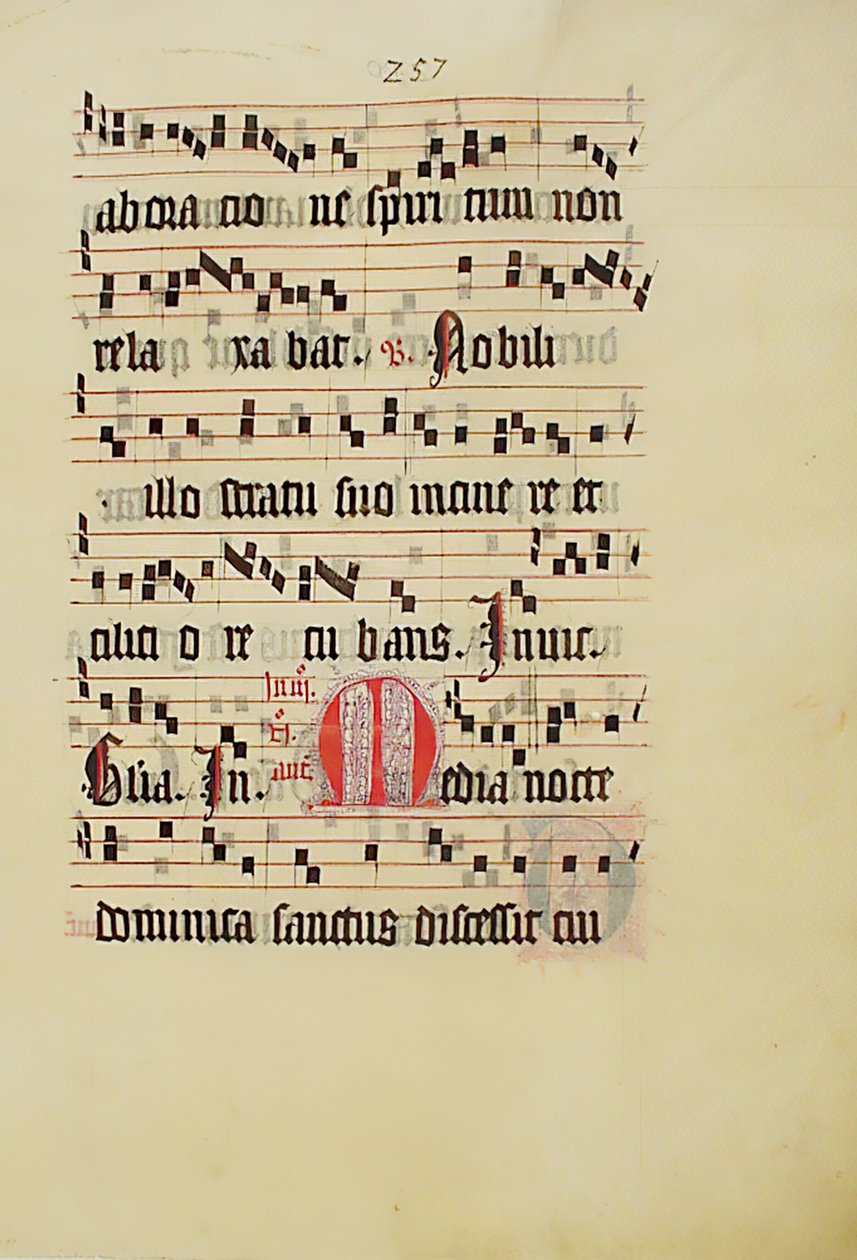 257
abora tio ne spiri tum non
rela xa bat. V. Nobili
illo stratu suo in cine re et
cilici o re cu bans. Invic.
Gl'ia. In. Media nocte
dominica sanctus discessit cui